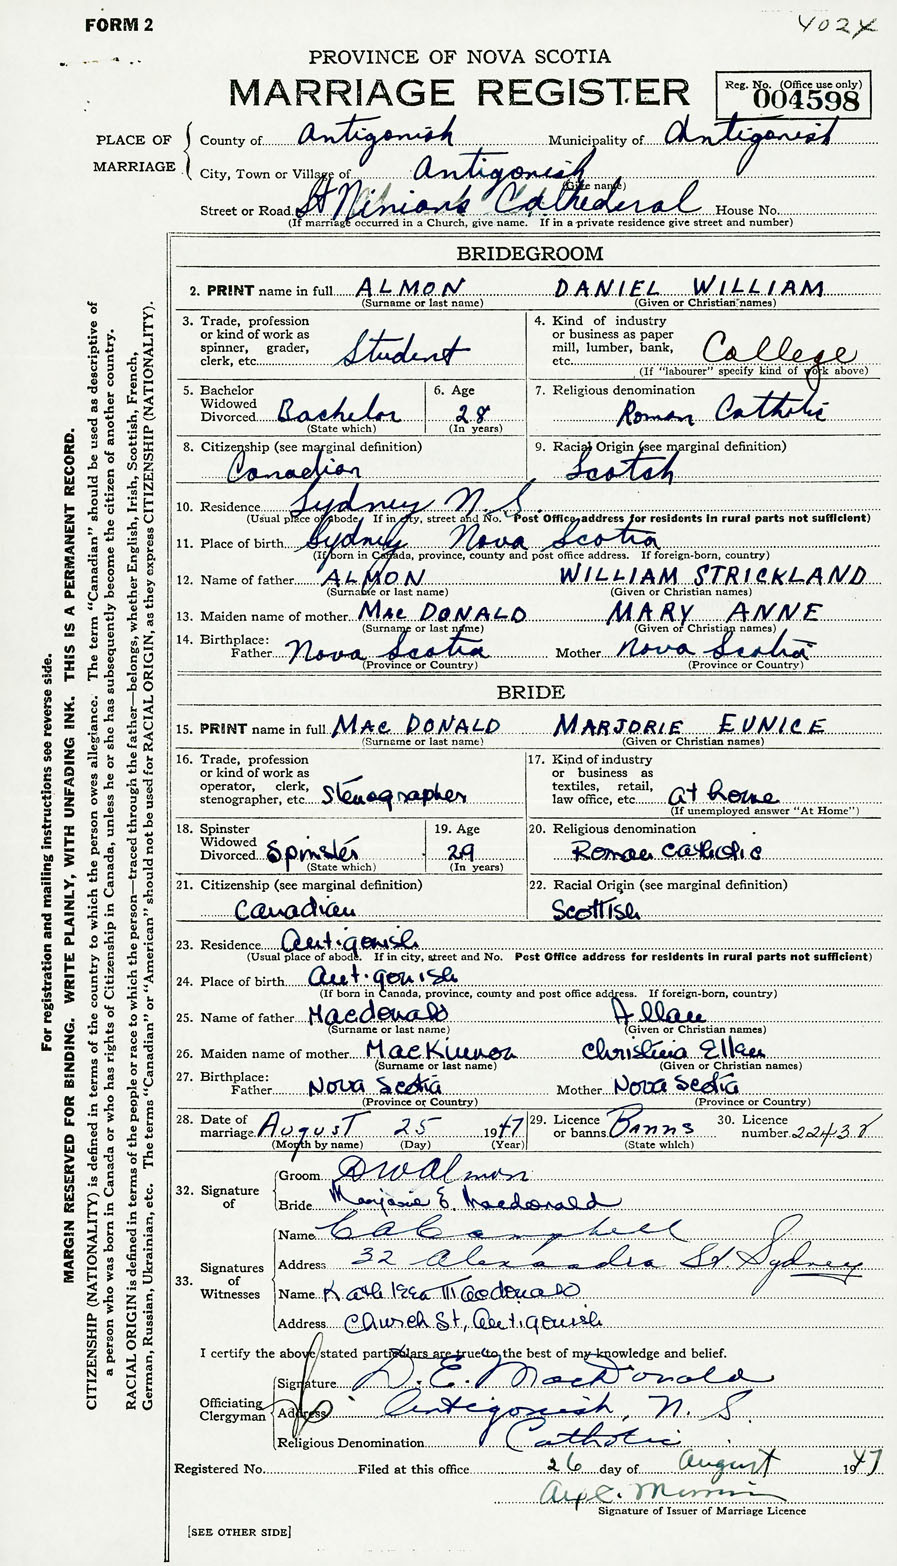 FORM 2
402X
PROVINCE OF NOVA SCOTIA
MARRIAGE REGISTER
Reg. No. (Office use only)
004598
PLACE OF MARRIAGE
County of Antigonish Municipality of Antigonish
City, Town or Village of Antigonish
(Give name)
Street or Road St Ninian's Cathederal House No.
(If marriage occurred in a Church, give name. If in a private residence give street and number)
BRIDEGROOM
2. PRINT name in full ALMON DANIEL WILLIAM
(Surname or last name) (Given or Christian names)
3. Trade, profession
or kind of work as
spinner, grader,
clerk, etc. Student
4. Kind of industry
or business as paper
mill, lumber, bank,
etc. College
(If "labourer" specify kind of work above)
5. Bachelor
Widowed
Divorced Bachelor
(State which)
6. Age
28
(In years)
7. Religious denomination
Roman Catholic
8. Citizenship (see marginal definition)
Canadian
9. Racial Origin (see marginal definition)
Scotch
10. Residence Sydney N.S.
(Usual place of abode. If in city, street and No. Post Office address for residents in rural parts not sufficient)
11. Place of birth Sydney Nova Scotia
(If born in Canada, province, county and post office address. If foreign-born, country)
12. Name of father ALMON WILLIAM STRICKLAND
(Surname or last name) (Given or Christian names)
13. Maiden name of mother MAC DONALD MARY ANNE
(Surname or last name) (Given or Christian names)
14. Birthplace:
Father Nova Scotia Mother Nova Scotia
(Province or Country) (Province or Country)
BRIDE
15. PRINT name in full MAC DONALD MARJORIE EUNICE
(Surname or last name) (Given or Christian names)
16. Trade, profession
or kind of work as
operator, clerk,
stenographer, etc. Stenographer
17. Kind of industry
or business as
textiles, retail,
law office, etc. At home
(If unemployed answer "At Home")
18. Spinster
Widowed
Divorced Spinster
(State which)
19. Age
29
(In years)
20. Religious denomination
Roman Catholic
21. Citizenship (see marginal definition)
Canadian
22. Racial Origin (see marginal definition)
Scottish
23. Residence Antigonish
(Usual place of abode. If in city, street and No. Post Office address for residents in rural parts not sufficient)
24. Place of birth Antigonish
(If born in Canada, province, county and post office address. If foreign-born, country)
25. Name of father Macdonald Allan
(Surname or last name) (Given or Christian names)
26. Maiden name of mother MacKinnon Christina Ellen
(Surname or last name) (Given or Christian names)
27. Birthplace:
Father Nova Scotia Mother Nova Scotia
(Province or Country) (Province or Country)
28. Date of
marriage August 25 1947
(Month by name) (Day) (Year)
29. Licence
or banns Banns
(State which)
30. Licence
number 22438
32. Signature of
Groom DW Almon
Bride Marjorie E. Macdonald
33. Signatures of Witnesses
Name C A Campbell
Address 32 Alexandra St. Sydney
Name Kathleen Macdonald
Address Church St, Antigonish
I certify the above stated particulars are true to the best of my knowledge and belief.
Officiating Clergyman
Signature D. E. MacDonald
Address Antigonish, N. S.
Religious Denomination Catholic
Registered No. Filed at this office 26 day of August 1947
Signature of Issuer of Marriage Licence
[SEE OTHER SIDE]
For registration and mailing instructions see reverse side.
MARGIN RESERVED FOR BINDING. WRITE PLAINLY, WITH UNFADING INK. THIS IS A PERMANENT RECORD.
CITIZENSHIP (NATIONALITY) is defined in terms of the country to which the person owes allegiance. The term "Canadian" should be used as descriptive of
a person who was born in Canada or who has rights of Citizenship in Canada, unless he or she has subsequently become the citizen of another country.
RACIAL ORIGIN is defined in terms of the people or race to which the person—traced through the father—belongs, whether English, Irish, Scottish, French,
German, Russian, Ukrainian, etc. The terms "Canadian" or "American" should not be used for RACIAL ORIGIN, as they express CITIZENSHIP (NATIONALITY).